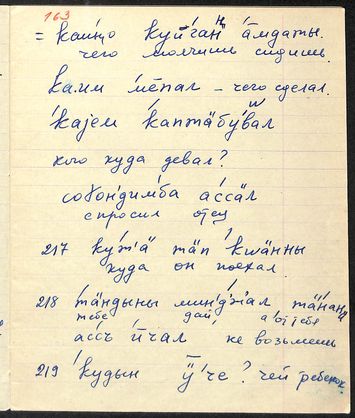 163
= каиӈо куйган āмдаты.
чего молчишь сидишь.
каим ме̄пал – чего сделал.
кајем каптӓбувал
кого куда девал?
соҕондимба ассӓл
спросил отец
217 куӆӓ тӓп кwӓнны
куда он поехал
218 тӓндыны
тебе дай а от тебя
ассъ ӣчал не возьмешь
219 кудын ӱ̄че? чей ребенок